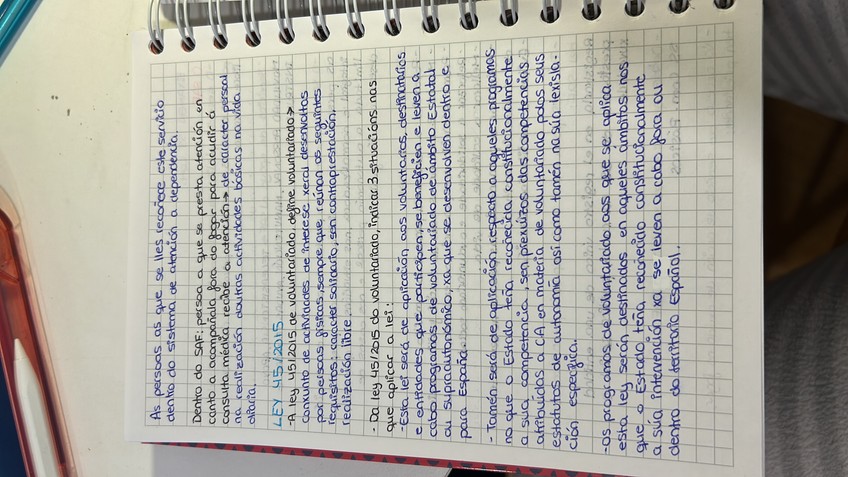 As persoas as que se lles recoñece este servicio
dentro do sistema de atención a dependencia.
Dentro do SAF: persoa a que se presta atención en
canto a acompañala fora do fogar para acudir á
consulta médica recibe a atención → de carácter persoal
na realización doutras actividades básicas na vida
diaria.
LEY 45/2015
-A ley 45/2015 de voluntariado, define voluntariado →
conxunto de actividades de interese xeral desenvoltas
por persoas físicas, sempre que, reúnan os seguintes
requisitos: carácter solidario, sen contraprestación,
realización libre
- Da ley 45/2015 do voluntariado, indicar 3 situacións nas
que aplicar a lei:
-Esta lei será de aplicación, aos voluntarios, destinatarios
e entidades que participen, se beneficien e leven a
cabo programas de voluntariado de ámbito Estatal
ou supraautonómico, xa que se desenvolven dentro e
para España.
- Tamén será de aplicación, respecto a aqueles programas
no que o Estado teña recoñecida constitucionalmente
a súa competencia, sen prexuizos das competencias
atribuidas a CA en materia de voluntariado polos seus
estatutos de autonomía así como tamén na súa lexisla-
ción específica.
-Os programas de voluntariado aos que se aplica
esta ley serán destinados en aqueles ámbitos nos
que o Estado, teña recoñecido constitucionalmente
a súa intervención xa se leven a cabo fora ou
dentro do territorio Español.